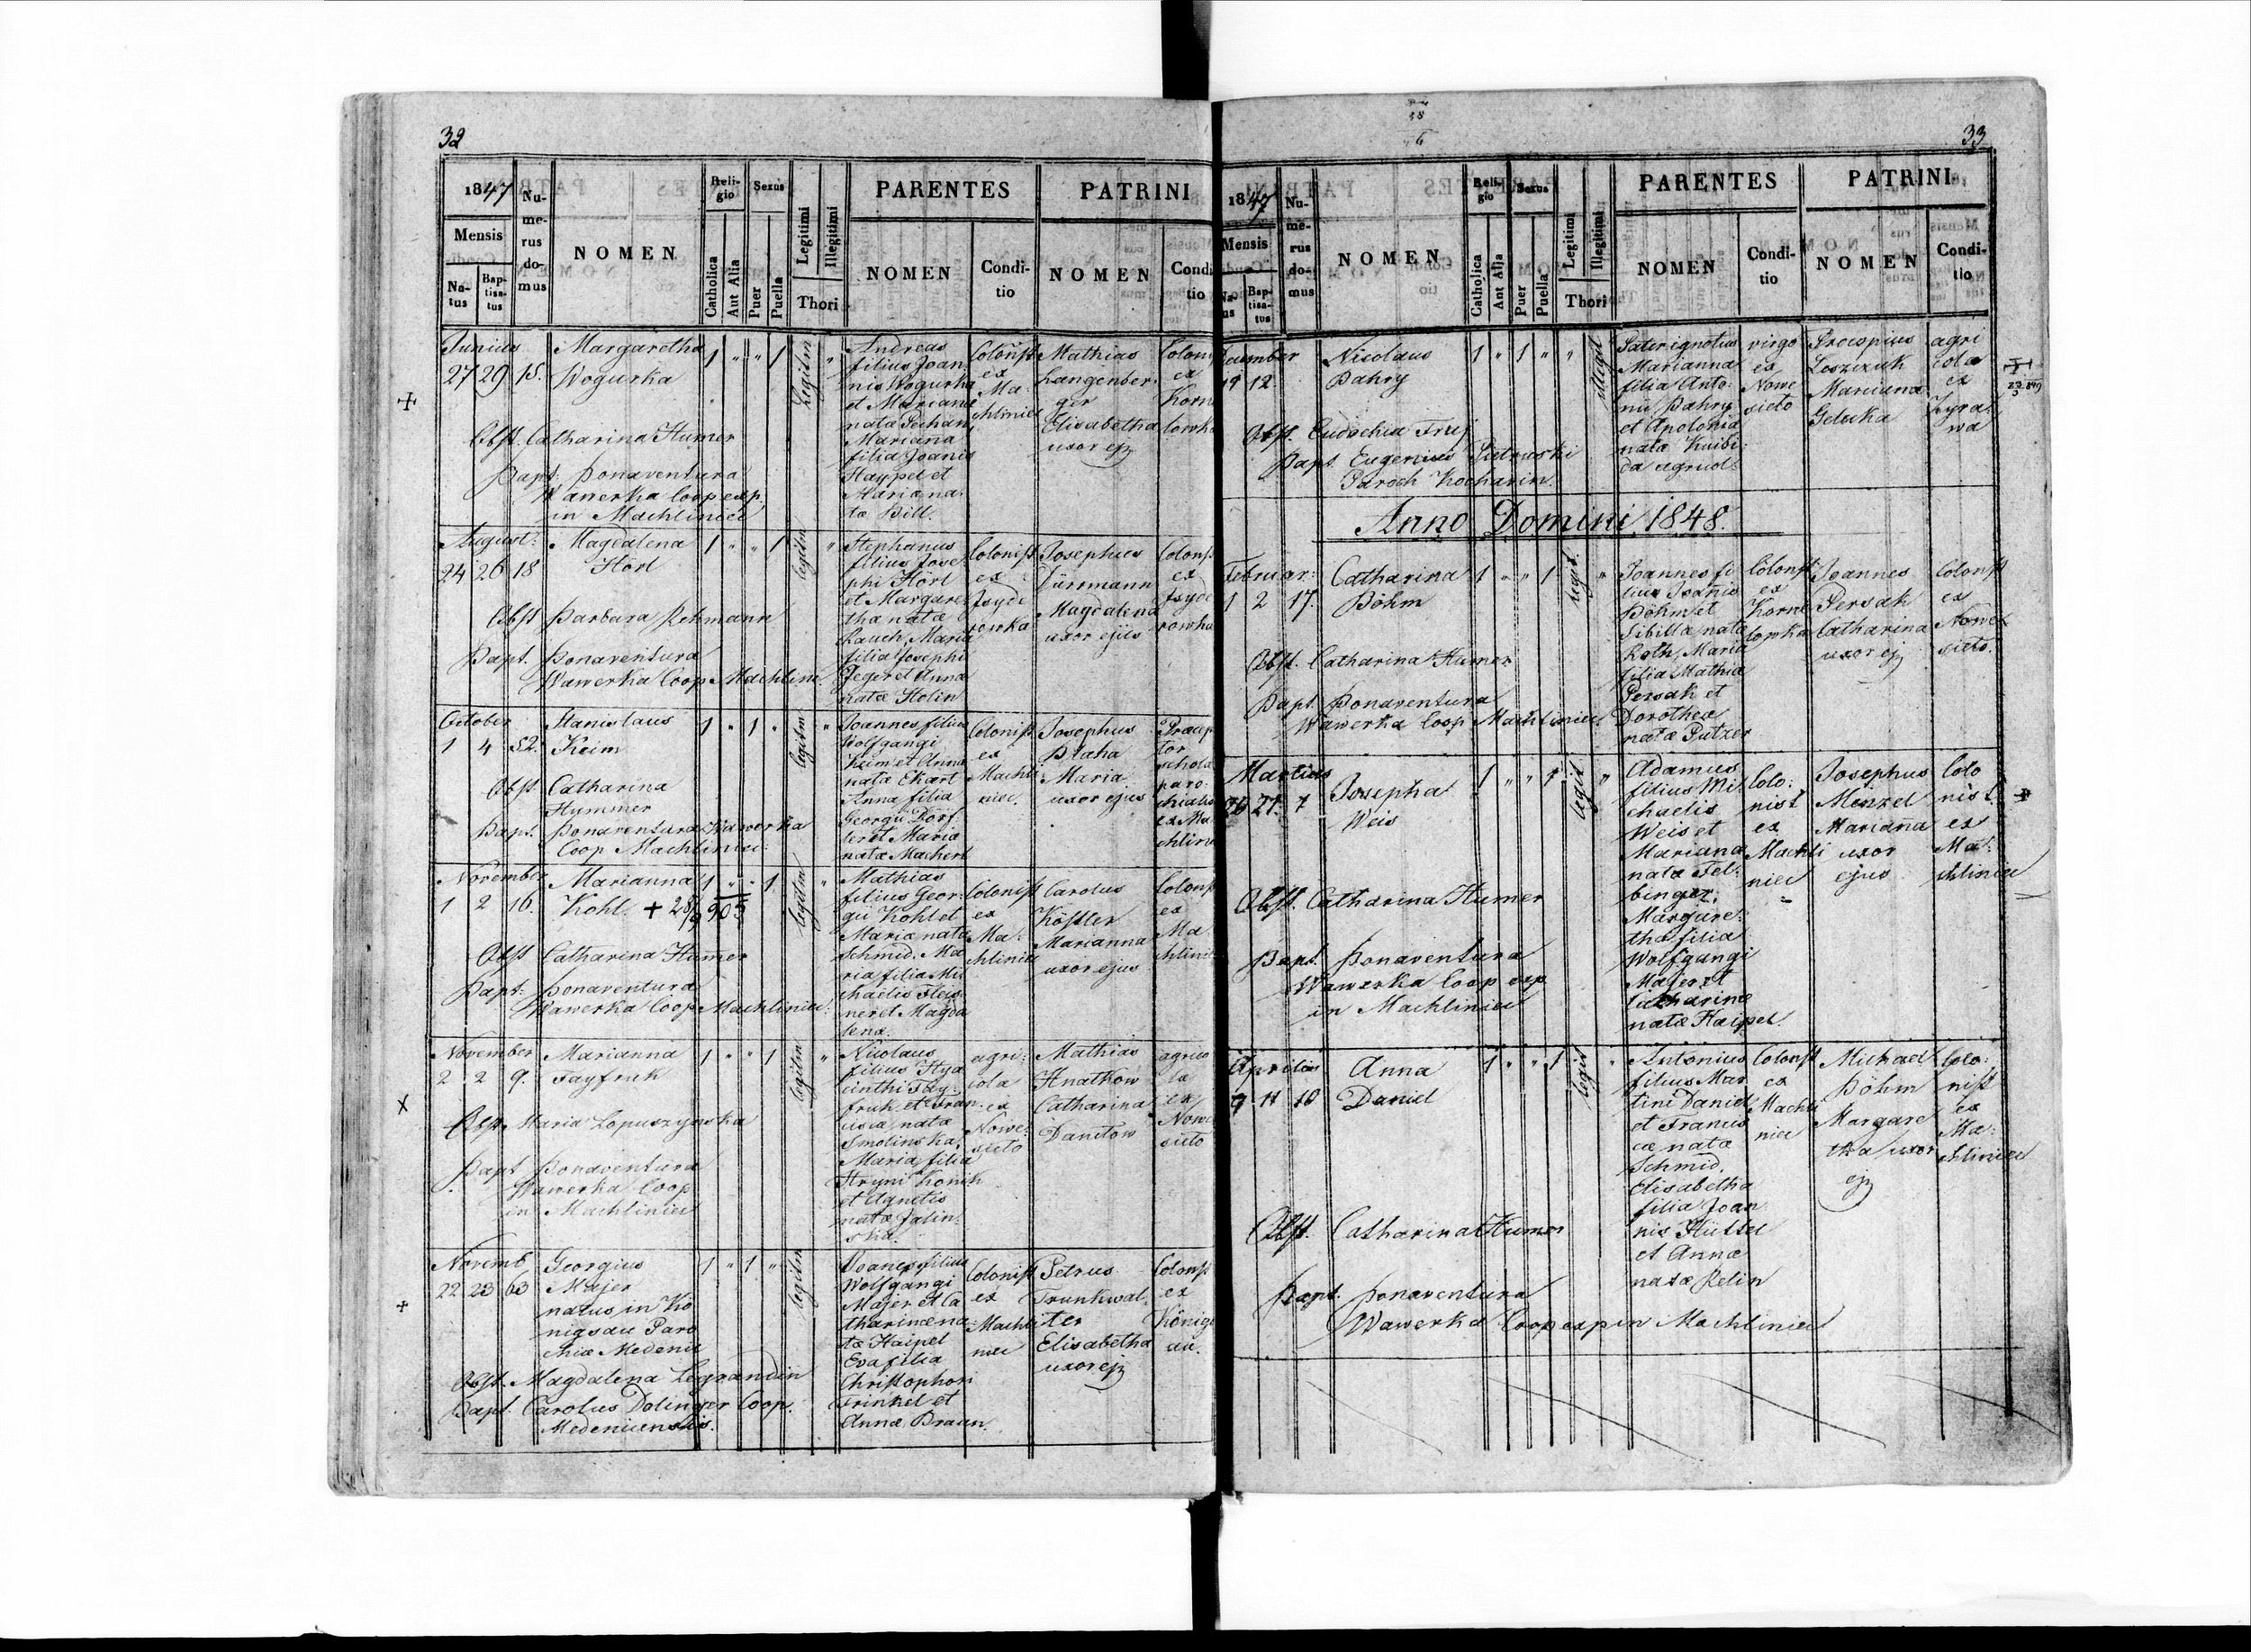 32
1847
Numerus domus
NOMEN
Religio
Sexus
Legitimi
Illegitimi
PARENTES
PATRINI
Mensis
Natus
Baptisatus
Catholica
Aut Alia
Puer
Puella
Thori
NOMEN
Conditio
NOMEN
Junius
27 29 15.
Margaretha
Wogurka
1 " " 1
Legitm "
Andreas
filius Joan
nis Wogurka
et Marianæ
nata Pechan,
Mariana
filia Joanis
Haypel et
Maria na:
ta Bill.
Colonist
ex
Ma
chliniec
Mathias
Langenber:
ger
Elisabetha
uxor ej
Colon
ex
Korne
lowka
Obst. Catharina Humer
Bapt: Bonaventura
Wawerka Coop exp.
in Machliniec
August:
24 26 18
Magdalena
Hörl
1 " " 1
legitm "
Stephanus
filius Jose
phi Hörl
et Margare
tha nata
Rauch, Maria
filia Josephi
Jeger et Anna
nata Holin
Colonist
ex
Jsyde
rowka
Josephus
Dürrmann
Magdalena
uxor ejus
Colonst
ex
Jsyde
rowka
Obst Barbara Rehmann
Bapt. Bonaventura
Wawerka Coop Machlin.
October
1 4 52.
Stanislaus
Keim
1 " 1 "
legitm "
Joannes filius
Wolfgangi
Keim et Anna
nata Ekart
Anna filia
Georgii Dörf
ler et Maria
nata Machert
Colonist
ex
Machli
niec.
Josephus
Blaha
Maria
uxor ejus
Præcep
tor
schola
paro:
chialis
ex Ma
chlin
Obst Catharina
Hummer
Bapt. Bonaventura Wawerka
Coop Machliniec.
November
1 2 16.
Marianna
Kohl. + 28/9 905
1 " " 1
legitm "
Mathias
filius Geor:
gii Kohl et
Maria nata
Schmid. Ma
ria filia Mi
chaelis Fleis
ner et Magda
lena.
Colonist
ex
Ma:
chliniec
Carolus
Köstler
Marianna
uxor ejus
Colonst
ex
Ma
chlinie
Obst Catharina Hum̄er
Bapt: Bonaventura
Wawerka Coop Machliniec:
November
2 2 9.
Marianna
Fayfruk
1 " " 1
legitm "
Nicolaus
filius Hya
cinthi Fay:
fruk et Fran
cisca nata
Smolinska,
Maria filia
Hryni Konik
et Agnetis
nata Jalin:
ska.
agri:
cola
ex
Nowe:
sieto
Mathias
Hnatkow
Catharina
Danitow
agrico
la
ex
Nowe
sieto
Obst. Maria Lopuszynska
Bapt Bonaventura
Wawerka Coop
in Machliniec
Novemb
22 23 63
Georgius
Majer
natus in Kö
nigsau Paro
chiæ Medenic
1 " 1 "
legitm
Joanes filius
Wolfgangi
Majer et Ca
tharinæ na:
ta Haipel
Eva filia
Christophori
Trinkel et
Annæ Braun.
Colonist
ex
Machli
niec
Petrus
Trunkwal:
ter
Elisabetha
uxor ej
Colonst
ex
König
au.
Obst. Magdalena Legrandin
Bapt. Carolus Dolinger Coop.
Medenicensis.
33
1847
Numerus domus
NOMEN
Religio
Sexus
Legitimi
Illegitimi
PARENTES
PATRINI
Mensis
Baptisatus
Catholica
Aut Alja
Puer
Puella
Thori
NOMEN
Conditio
NOMEN
Conditio
12.
Nicolaus
Bahry
1 " 1 " "
illegit
Pater ignotus
Marianna
filia Anto:
nii Bahry
et Apolonia
nata Kuibi:
da agricol
virgo
ex
Nowe
sieto
Procopius
Leszczuk
Mariana
Geluka
agri
cola
ex
Zyra:
wa
Obst. Eudochia Fruj
Bapt Eugenius Pietruski
Paroch Kocharin.
Anno Domini 1848.
Februar:
1 2 17.
Catharina
Böhm
1 " " 1
legit. "
Joannes fi
lius Joanis
Böhm et
Sibilla nata
Roth, Maria
filia Mathiæ
Persak et
Dorothea
nata Putzer
Colonst
ex
Korne
lowka
Joannes
Persak
Catharina
uxor ej
Colonst
ex
Nowe
sieto.
Obst. Catharina Humer
Bapt Bonaventura
Wawerka Coop Machliniec.
Martius
26 27. 7
Josepha
Weis
1 " " 1
legit "
Adamus
filius Mi
chaelis
Weis et
Mariana
nata Fel:
binger.
Margare:
tha filia
Wolfgangi
Majer et
Catharinæ
nata Haipel.
Colo:
nist
ex
Machli
niec
Josephus
Minzel
Marian̄a
uxor
ejus
Colo
nist
ex
Ma:
chliniec
Obst. Catharina Humer
Bapt. Bonaventura
Wawerka Coop exp
in Machliniec
Aprilis
9 11 10
Anna
Daniel
1 " " 1
legit "
Antonius
filius Mar
tini Daniel
et Francis
cæ nata
Schmid.
Elisabetha
filia Joan
nis Hüttel
et Annæ
nata Relin
Colonst
ex
Machli
niec
Michael
Böhm
Margare
tha uxor
ej
Colo:
nist
ex
Ma:
chliniec
Obst. Catharina Humer
Bapt. Bonaventura
Wawerka Coop exp in Machliniec